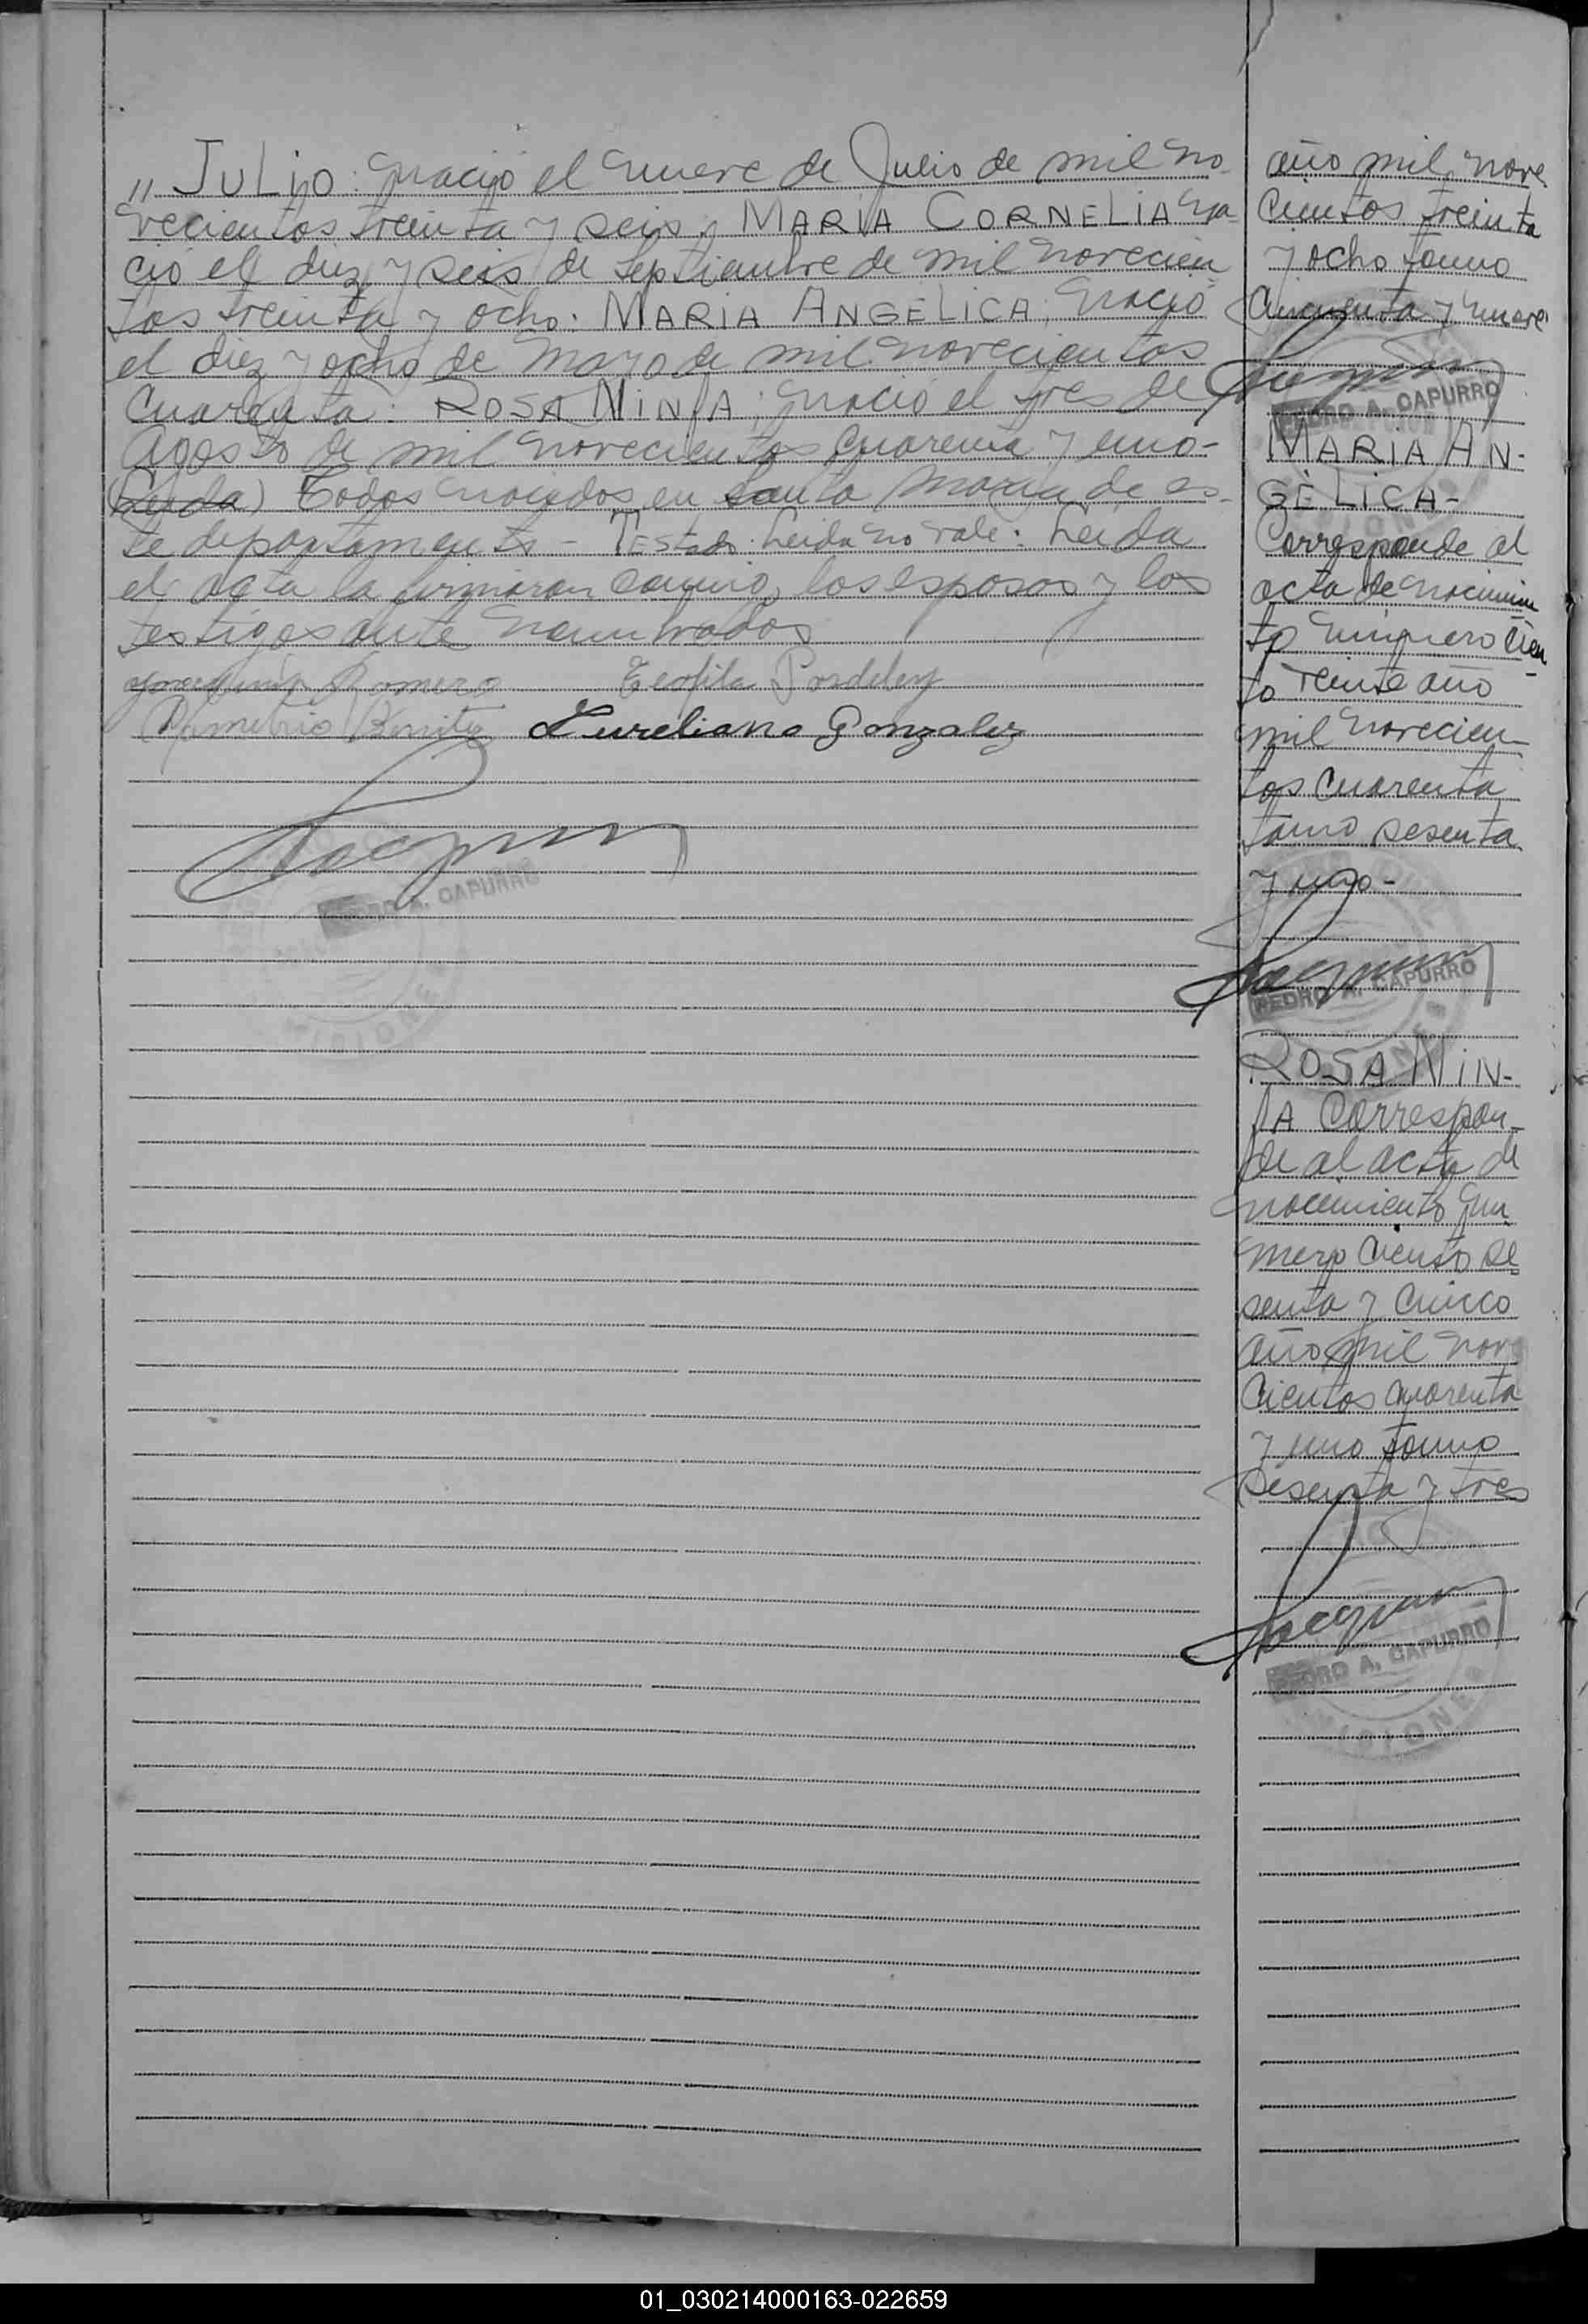 " JULIO: nació el nueve de Julio de mil no
vecientos treinta y seis, MARIA CORNELIA na
ció el diez y seis de septiembre de mil novecien
tos treinta y ocho: MARIA ANGELICA, nació
el diez y ocho de Mayo de mil novecientos
cuarenta: ROSA NINFA; nació el tres de
Agosto de mil novecientos cuarenta y uno-
(Leida) Todos nacidos en Santa Maria de es-
te departamento - Testado: Leida no vale: Leida
el acta la firmaron conmigo los esposos y los
testigos ante nombrados
Romero Teofila
Benitez Aureliano Gonzalez
PEDRO A. CAPURRO
MISIONES
año mil nove
cientos treinta
y ocho tomo
cincuenta y nueve
PEDRO A. CAPURRO
MARIA AN-
GELICA-
Corresponde al
acta de nacimien
to número cien
to veinte año
mil novecien
tos cuarenta
tomo sesenta
y uno-
PEDRO A. CAPURRO
ROSA NIN-
FA Correspon-
de al acta de
nacimiento nu
mero ciento se
senta y cinco
año mil nove
cientos cuarenta
y uno tomo
sesenta y tres
PEDRO A. CAPURRO
MISIONES
01_030214000163-022659